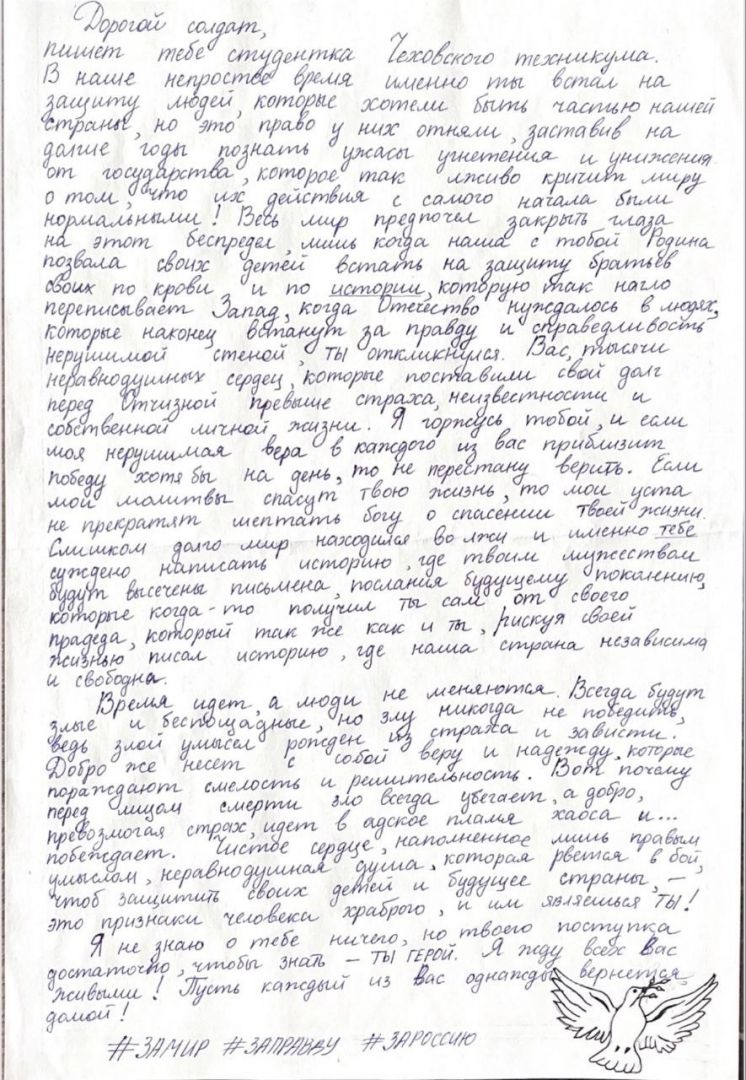 Дорогой солдат,
пишет тебе студентка Чеховского техникума.
В наше непростое время именно ты встал на
защиту людей, которые хотели быть частью нашей
страны, но это право у них отняли, заставив на
долгие годы познать ужасы угнетения и унижения
от государства, которое так лживо кричит миру
о том, что их действия с самого начала были
нормальными! Весь мир предпочел закрыть глаза
на этот беспредел, лишь когда наша с тобой Родина
позвала своих детей встать на защиту братьев
своих по крови и по истории, которую так нагло
переписывает Запад, когда Отечество нуждалось в людях,
которые наконец встанут за правду и справедливость
нерушимой стеной, ты откликнулся. Вас, тысячи
неравнодушных сердец, которые поставили свой долг
перед Отчизной превыше страха, неизвестности и
собственной личной жизни. Я горжусь тобой, и если
моя нерушимая вера в каждого из вас приблизит
победу хотя бы на день, то не перестану верить. Если
мои молитвы спасут твою жизнь, то мои уста
не прекратят шептать богу о спасении твоей жизни.
Слишком долго мир находился во лжи и именно тебе
суждено написать историю, где твоим мужеством
будут высечены письмена, послания будущему поколению,
которые когда-то получил ты сам от своего
прадеда, который так же как и ты, рискуя своей
жизнью писал историю, где наша страна независима
и свободна.
Время идет, а люди не меняются. Всегда будут
злые и беспощадные, но злу никогда не победить,
ведь злой умысел рожден из страха и зависти.
Добро же несет с собой веру и надежду, которые
пораждают смелость и решительность. Вот почему
перед лицом смерти зло всегда убегает, а добро,
превозмогая страх, идет в адское пламя хаоса и...
побеждает. Чистое сердце, наполненное лишь правым
умыслом, неравнодушная душа, которая рвется в бой,
чтоб защитить своих детей и будущее страны, –
это признаки человека храброго, и им являешься ТЫ!
Я не знаю о тебе ничего, но твоего поступка
достаточно, чтобы знать – ТЫ ГЕРОЙ. Я жду всех Вас
живыми! Пусть каждый из Вас однажды вернется
домой!
#ЗАМИР #ЗАПРАВДУ #ЗАРОССИЮ